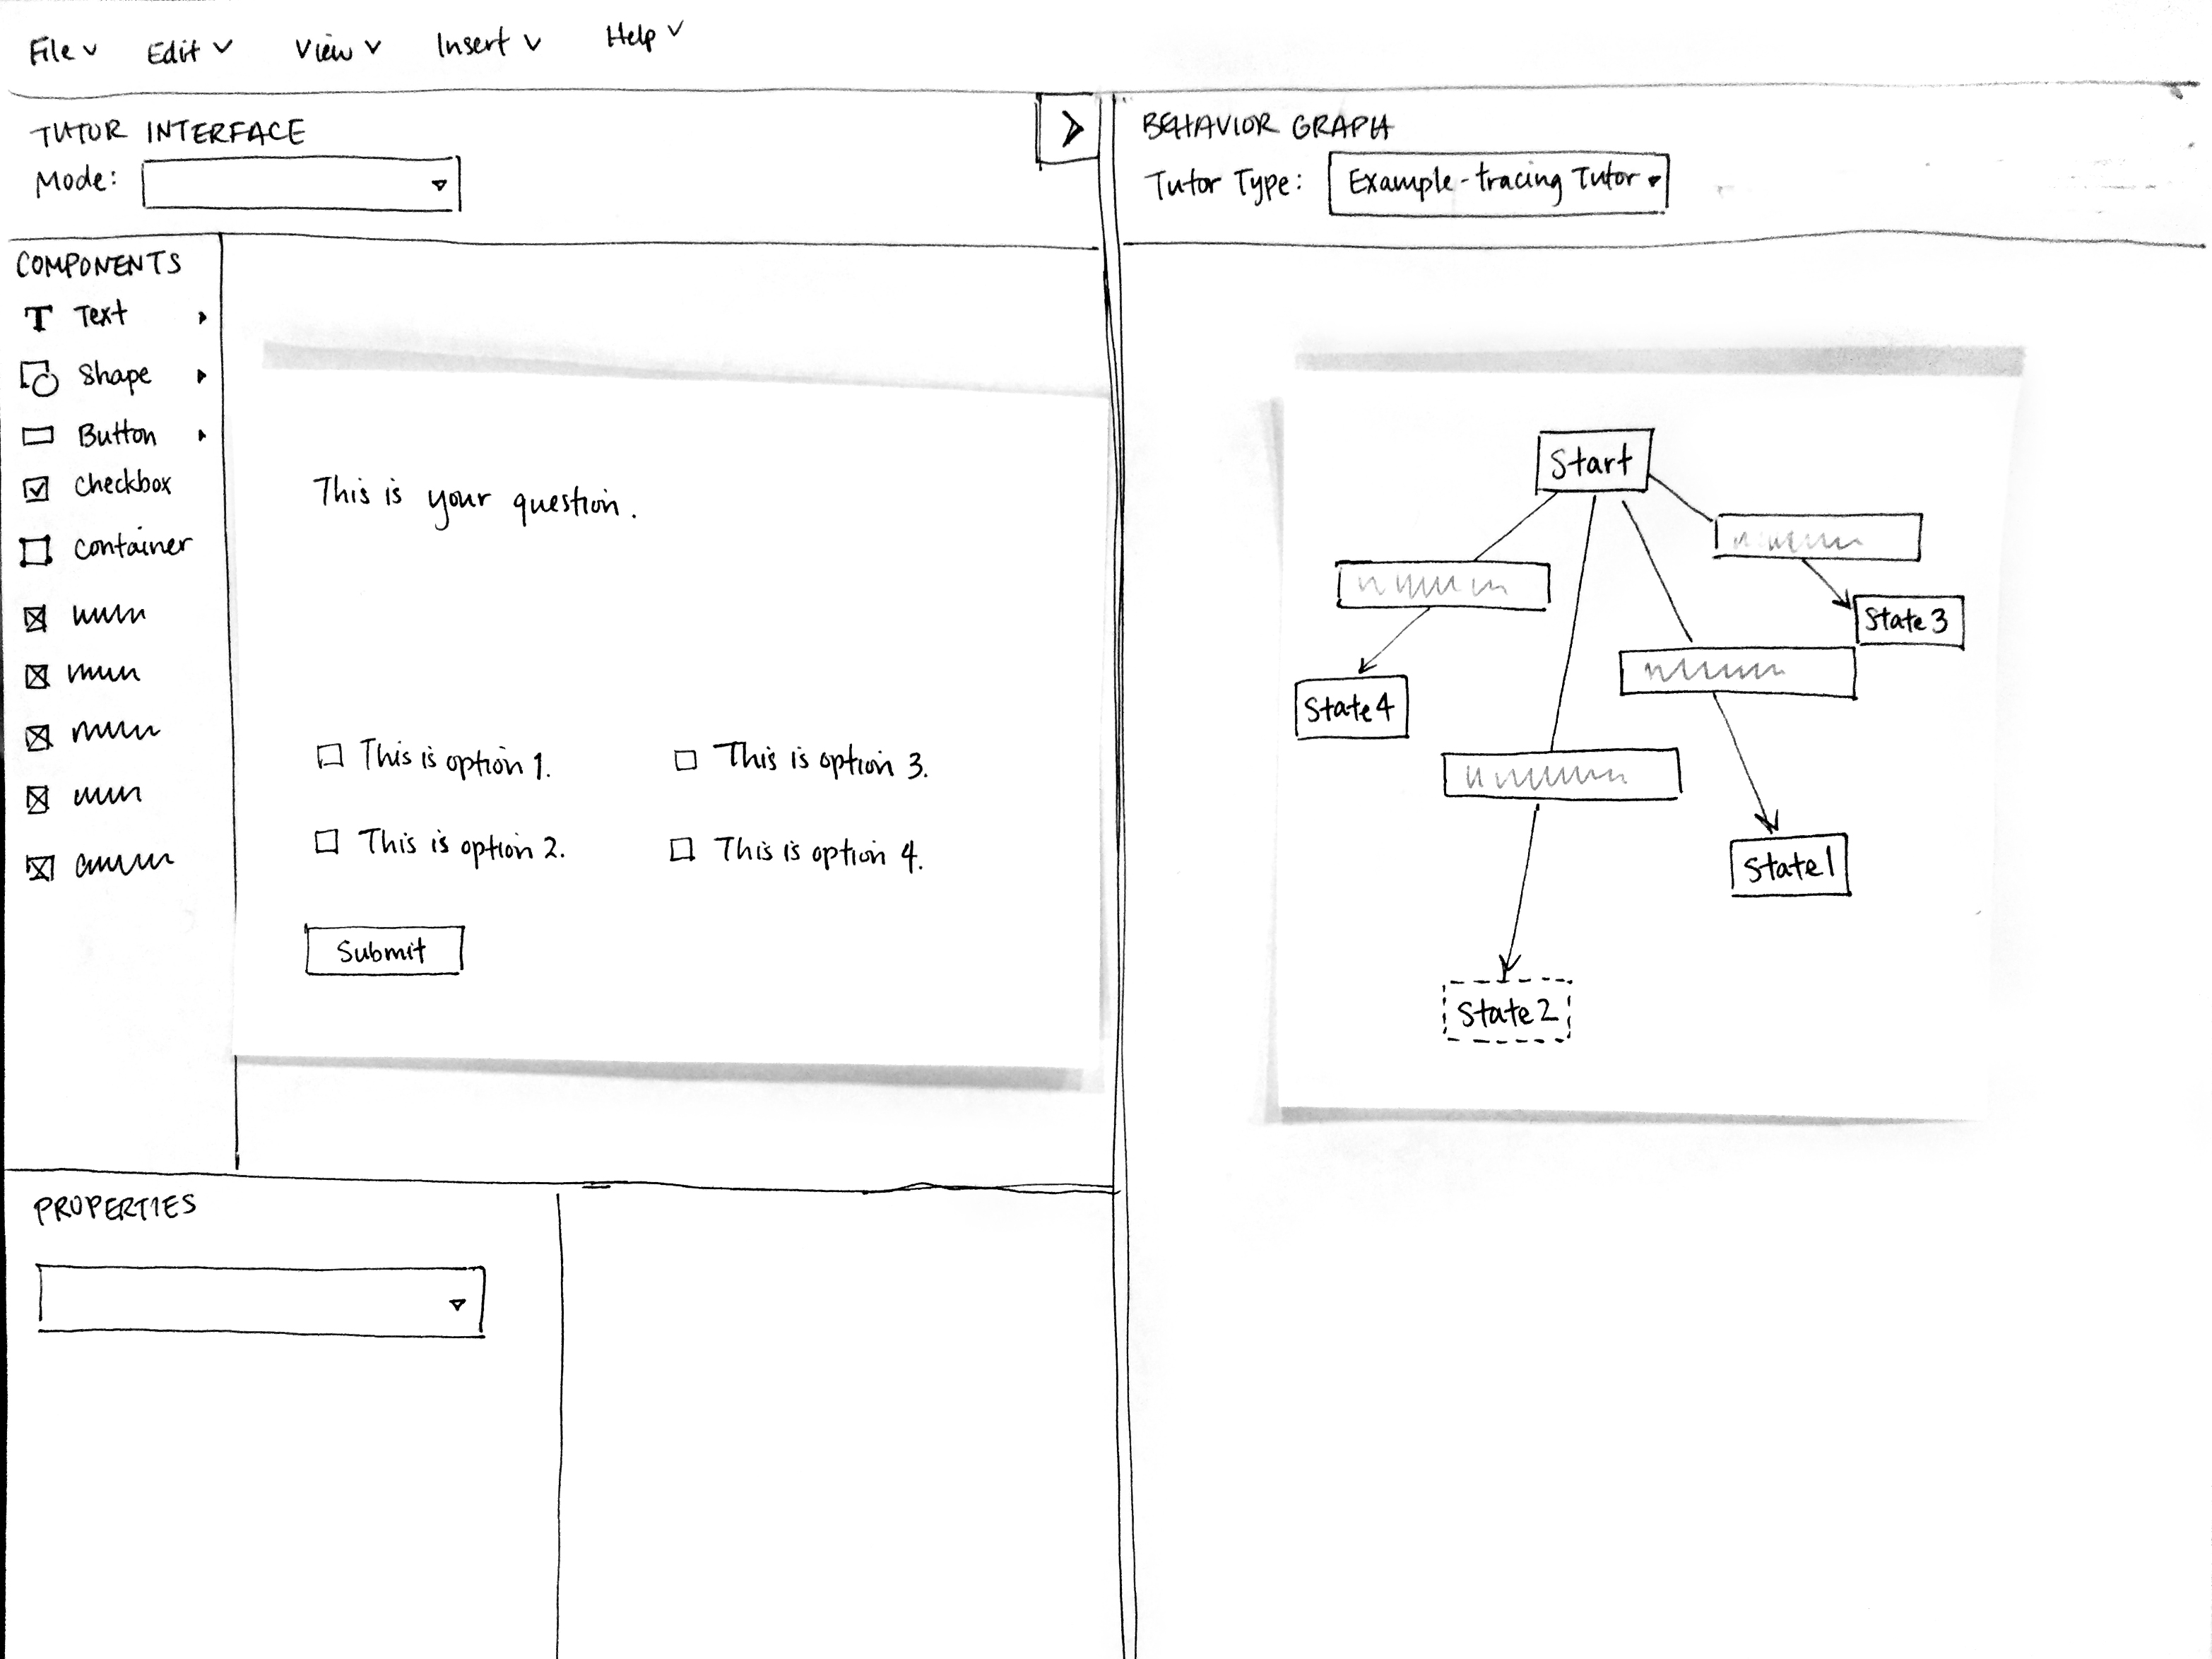 File Edit View Insert Help
TUTOR INTERFACE
Mode:
COMPONENTS
Text
Shape
Button
Checkbox
Container
This is your question.
This is option 1.
This is option 3.
This is option 2.
This is option 4.
Submit
PROPERTIES
BEHAVIOR GRAPH
Tutor Type: Example-tracing Tutor
Start
State 3
State 4
State 1
State 2